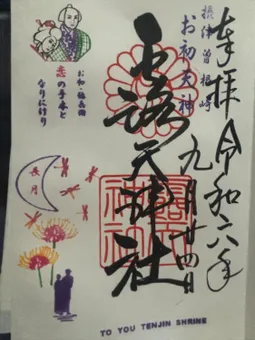 奉拝 令和六年
摂津曽根崎
お初天神
九月廿四日
露天神社
お初・徳兵衛
恋の手本と
なりにけり
長月
TO YOU TENJIN SHRINE